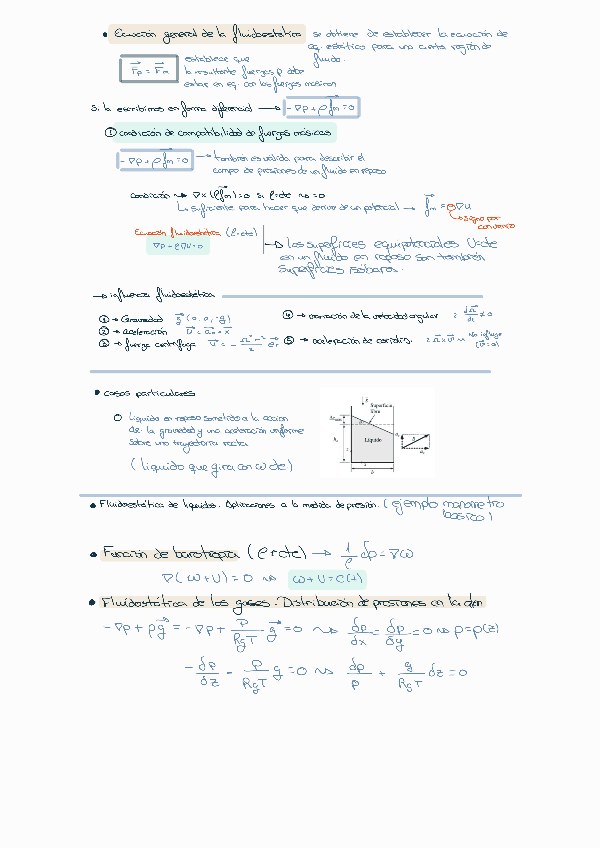 • Ecuación general de la fluidoestática se obtiene de establecer la ecuación de
eq. estático para una cierta región de
fluido.
Fp = Fm establece que
la resultante fuerzas p debe
estar en eq. con las fuerzas másicas
Si la escribimos en forma diferencial → -∇p + ρfm = 0
① condición de compatibilidad de fuerzas másicas
-∇p + ρfm = 0 → también es válida para describir el
campo de presiones de un fluido en reposo
condición → ∇x(ρfm)=0 si ρ=cte → =0
↳ suficiente para hacer que derive de un potencial → fm = -∇U
↳ signo por
convenio
Ecuación fluidostática (ρ=cte)
∇p + ρ∇U = 0
→ Las superficies equipotenciales U=cte
en un fluido en reposo son también
superficies isobaras.
→ influencia fluidostática
① → Gravedad g (0, 0, -g)
② → aceleración U = a0 · x
③ → fuerza centrífuga U = - Ω² r² / 2 er
④ → variación de la velocidad angular dΩ/dt ≠ 0
⑤ → aceleración de coriolis. 2Ω x v → No influye
(v=0)
• casos particulares
○ Líquido en reposo sometido a la acción
de la gravedad y una aceleración uniforme
sobre una trayectoria recta
(líquido que gira con ω cte)
Superficie
libre
Líquido
• Fluidostática de líquidos. Aplicaciones a la medida de presión. (ejemplo manómetro
básico)
• Función de barotropía (ρ≠cte) → 1/ρ dp = ∇ω
∇(ω+U) = 0 → ω+U=C(t)
• Fluidostática de los gases. Distribución de presiones en la atm
-∇p + ρg = -∇p + p/RgT g = 0 → δp/δx = δp/δy = 0 → p=p(z)
- δp/δz - p/RgT g = 0 → δp/p + g/RgT δz = 0